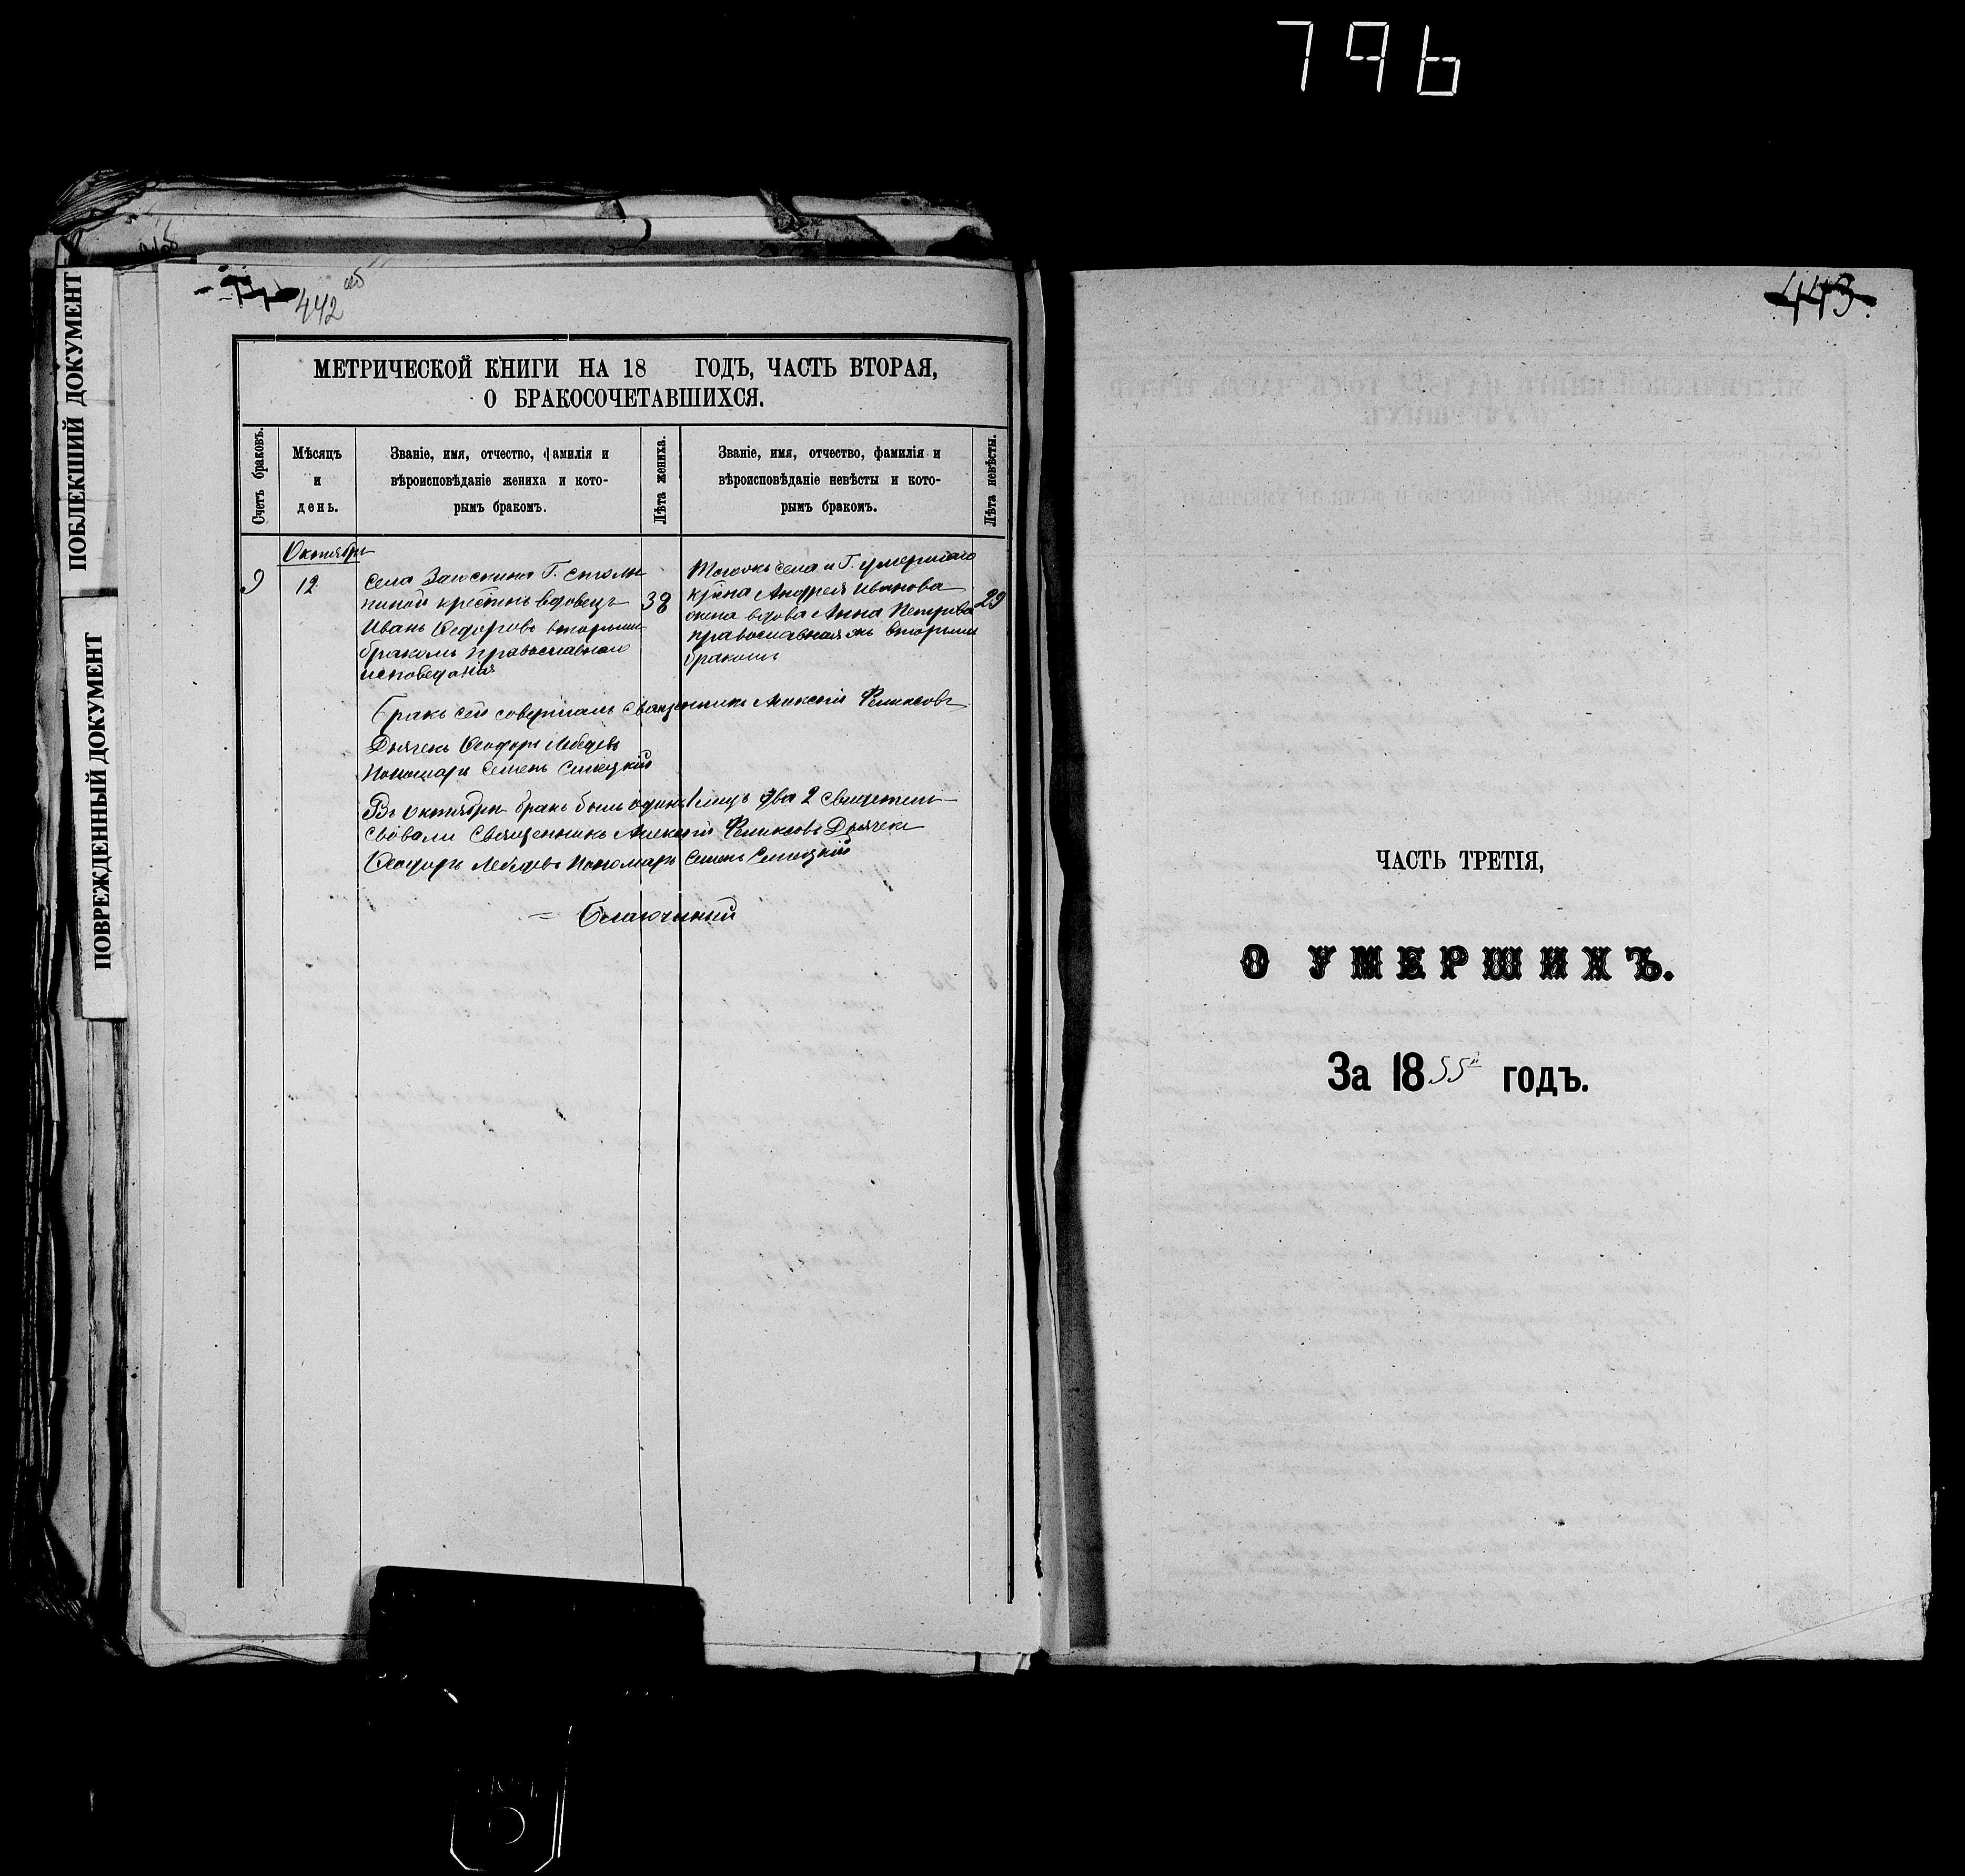 796
ПОБЛЕКШИЙ ДОКУМЕНТ
ПОВРЕЖДЕННЫЙ ДОКУМЕНТ
442 об
МЕТРИЧЕСКОЙ КНИГИ НА 18 ГОДЪ, ЧАСТЬ ВТОРАЯ,
О БРАКОСОЧЕТАВШИХСЯ.
Счетъ браковъ.
Мѣсяцъ
и
день.
Званіе, имя, отчество, фамилія и
вѣроисповѣданіе жениха и кото-
рымъ бракомъ.
Лѣта жениха.
Званіе, имя, отчество, фамилія и
вѣроисповѣданіе невѣсты и кото-
рымъ бракомъ.
Лѣта невѣсты.
Октябрь
9
12
Села Г. Столы
пиной крестинъ вдовецъ
Иванъ Ѳедоровъ вторымъ
бракомъ православнаго
исповеданія
38
Тогожъ села и Г. умершаго
крѣна Андрея Иванова
жена вдова Анна Петрова
православная вторымъ
бракомъ
29
Бракъ сей совершалъ Священникъ Алексій Феликсовъ
Дьячекъ Ѳеодоръ Лебедевъ
Пономарь Семенъ
Въ октябрѣ бракъ былъ одинъ 1 лицъ два 2 свидетель
ствовали Священникъ Алексій Феликсовъ Дьячекъ
Ѳеодоръ Лебедевъ Пономарь Семенъ
Благочинный
443.
ЧАСТЬ ТРЕТІЯ,
О УМЕРШИХЪ.
За 1855й годъ.